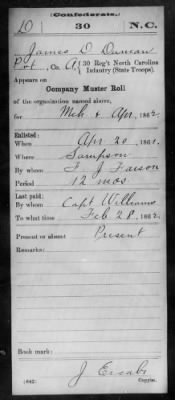 (Confederate.)
D 30 N.C.
James D Duncan
Pvt, Co. A, 30 Reg't North Carolina
Infantry (State Troops).
Appears on
Company Muster Roll
of the organization named above,
for Mch & Apr, 1862.
Enlisted:
When Apr 20, 1861.
Where Sampson
By whom F. J. Faison
Period 12 mos
Last paid:
By whom Capt Williams
To what time Feb 28, 1862.
Present or absent Present
Remarks:
Book mark:
(642) Copyist.